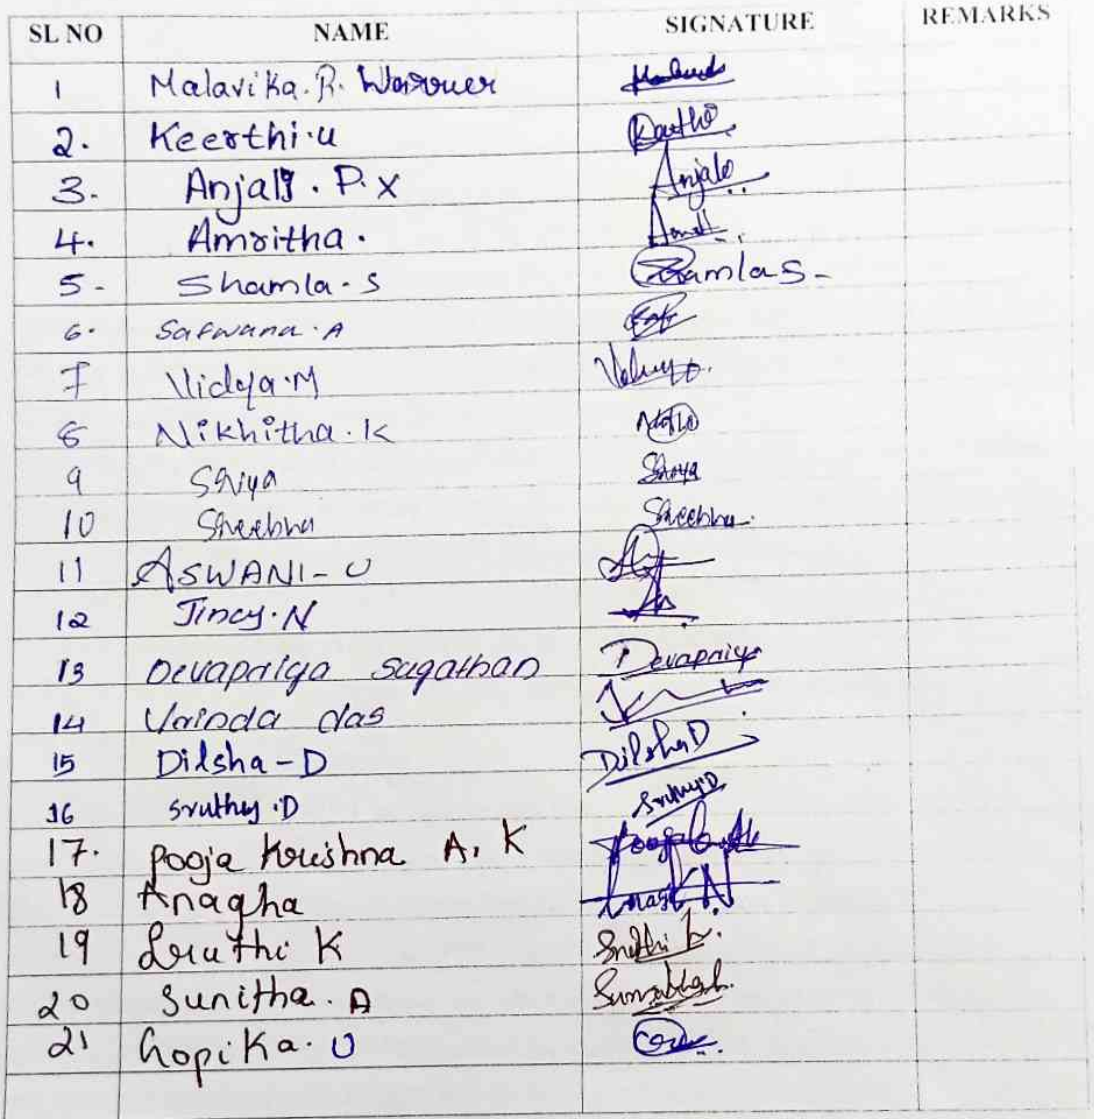 SL NO NAME SIGNATURE REMARKS
1 Malavika. R. Warrier
2. Keerthi.u
3. Anjaly . P. X Anjale
4. Amritha.
5 - Shamla - S Shamla S -
6. Safwana . A
7 Vidya.M
8 Nikhitha . K
9 Sriya Sriya
10 Sheebha Sheebha.
11 ASWANI - U
12 Jincy . N
13 Devapriya Sugathan Devapriya
14 Vrinda das
15 Dilsha - D Dilsha D
16 Sruthy .D Sruthy.D
17. Pooja Krishna A. K
18 Anagha
19 Sruthi K Sruthi k.
20 Sunitha . A
21 Gopika. U